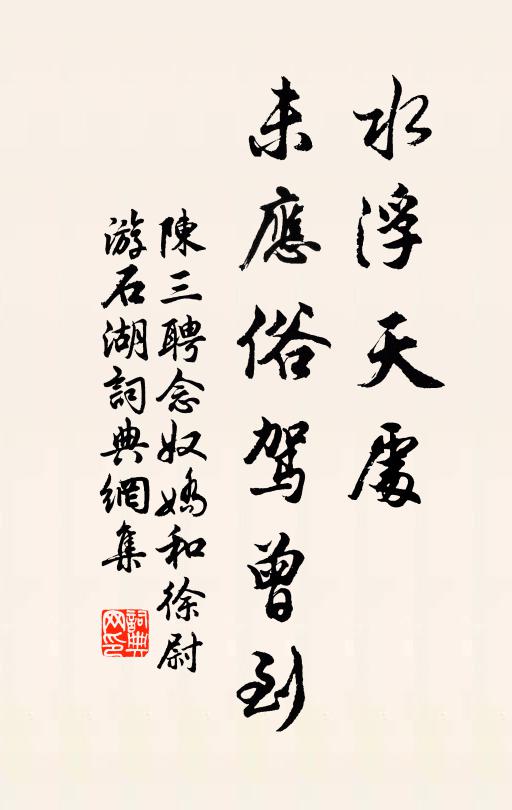 水浮天處
未應俗駕曾到
陳三聘念奴嬌和徐尉
游石湖詞典網集
詞典
网印